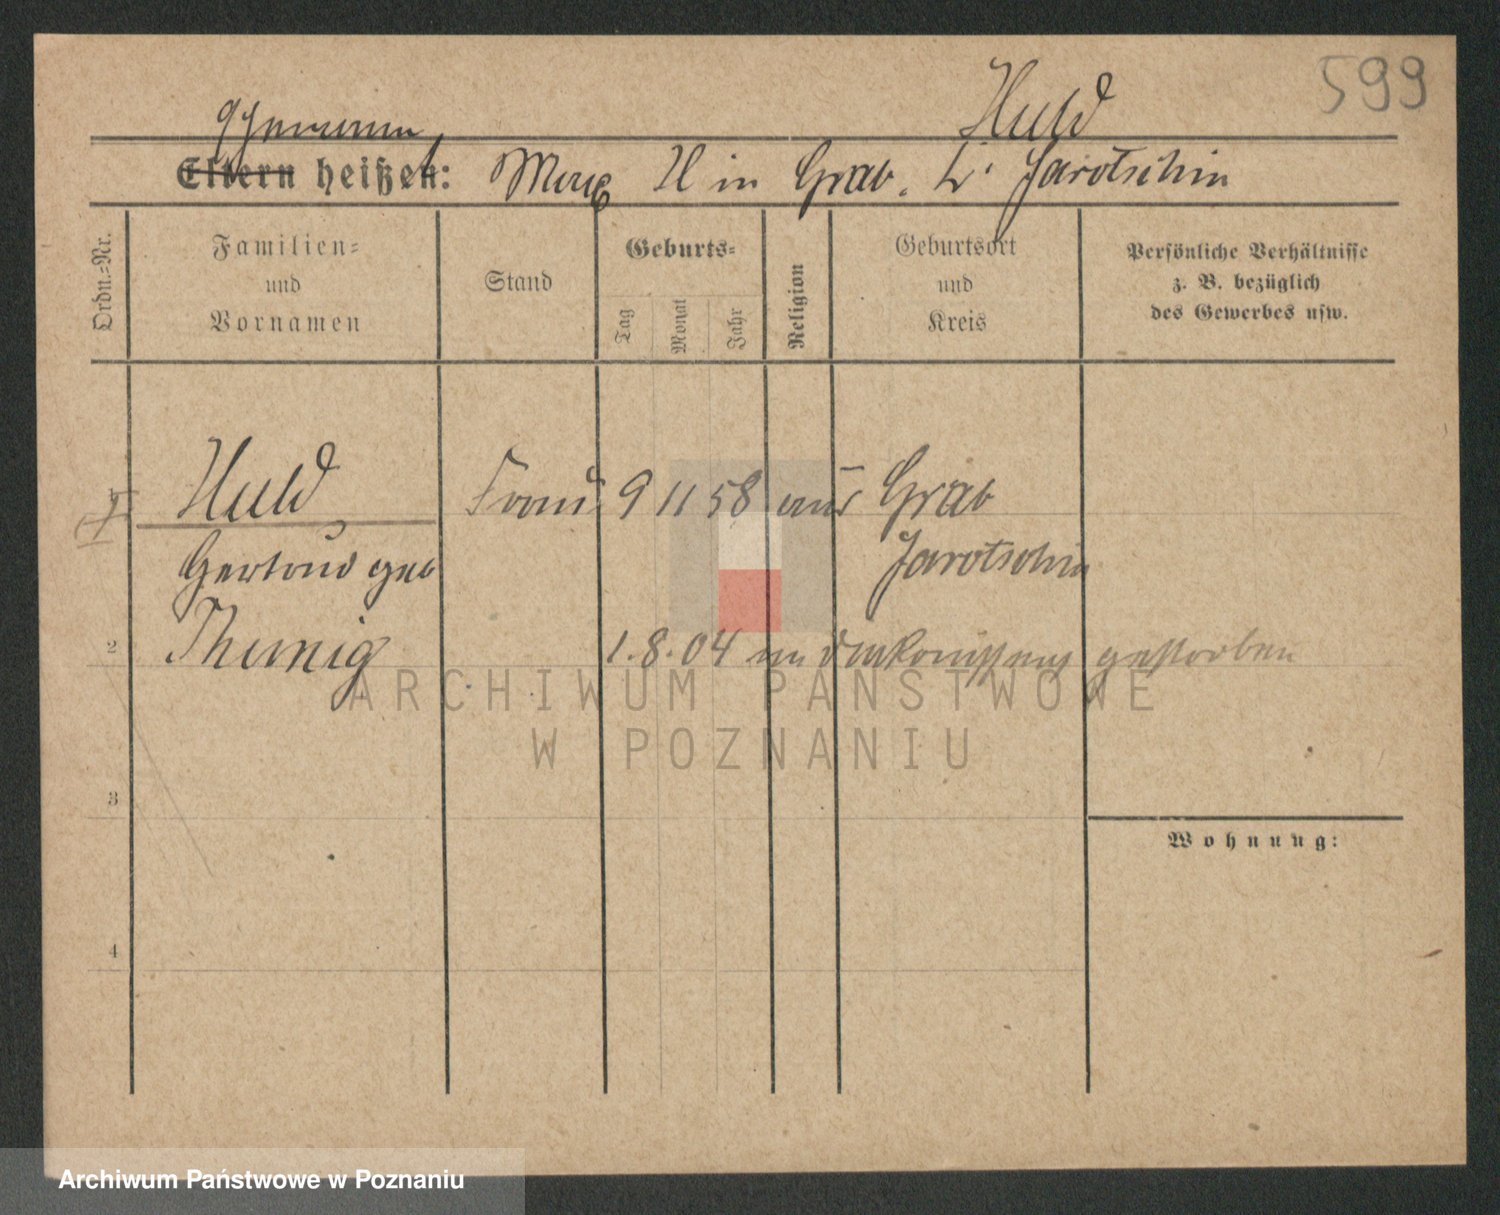 599
Huld
Ehemann
Eltern heißen: Max H in Grab. Kr. Jarotschin
Ordn.=Nr.
Familien=
und
Vornamen
Stand
Geburts=
Tag
Monat
Jahr
Religion
Geburtsort
und
Kreis
Persönliche Verhältnisse
z. B. bezüglich
des Gewerbes usw.
Huld Frau 9 11 58 aus Grab
Gertrud geb Jarotschin
2 Thunig 1.8.04 im gestorben
3
Wohnung:
4
ARCHIWUM PAŃSTWOWE
W POZNANIU
Archiwum Państwowe w Poznaniu